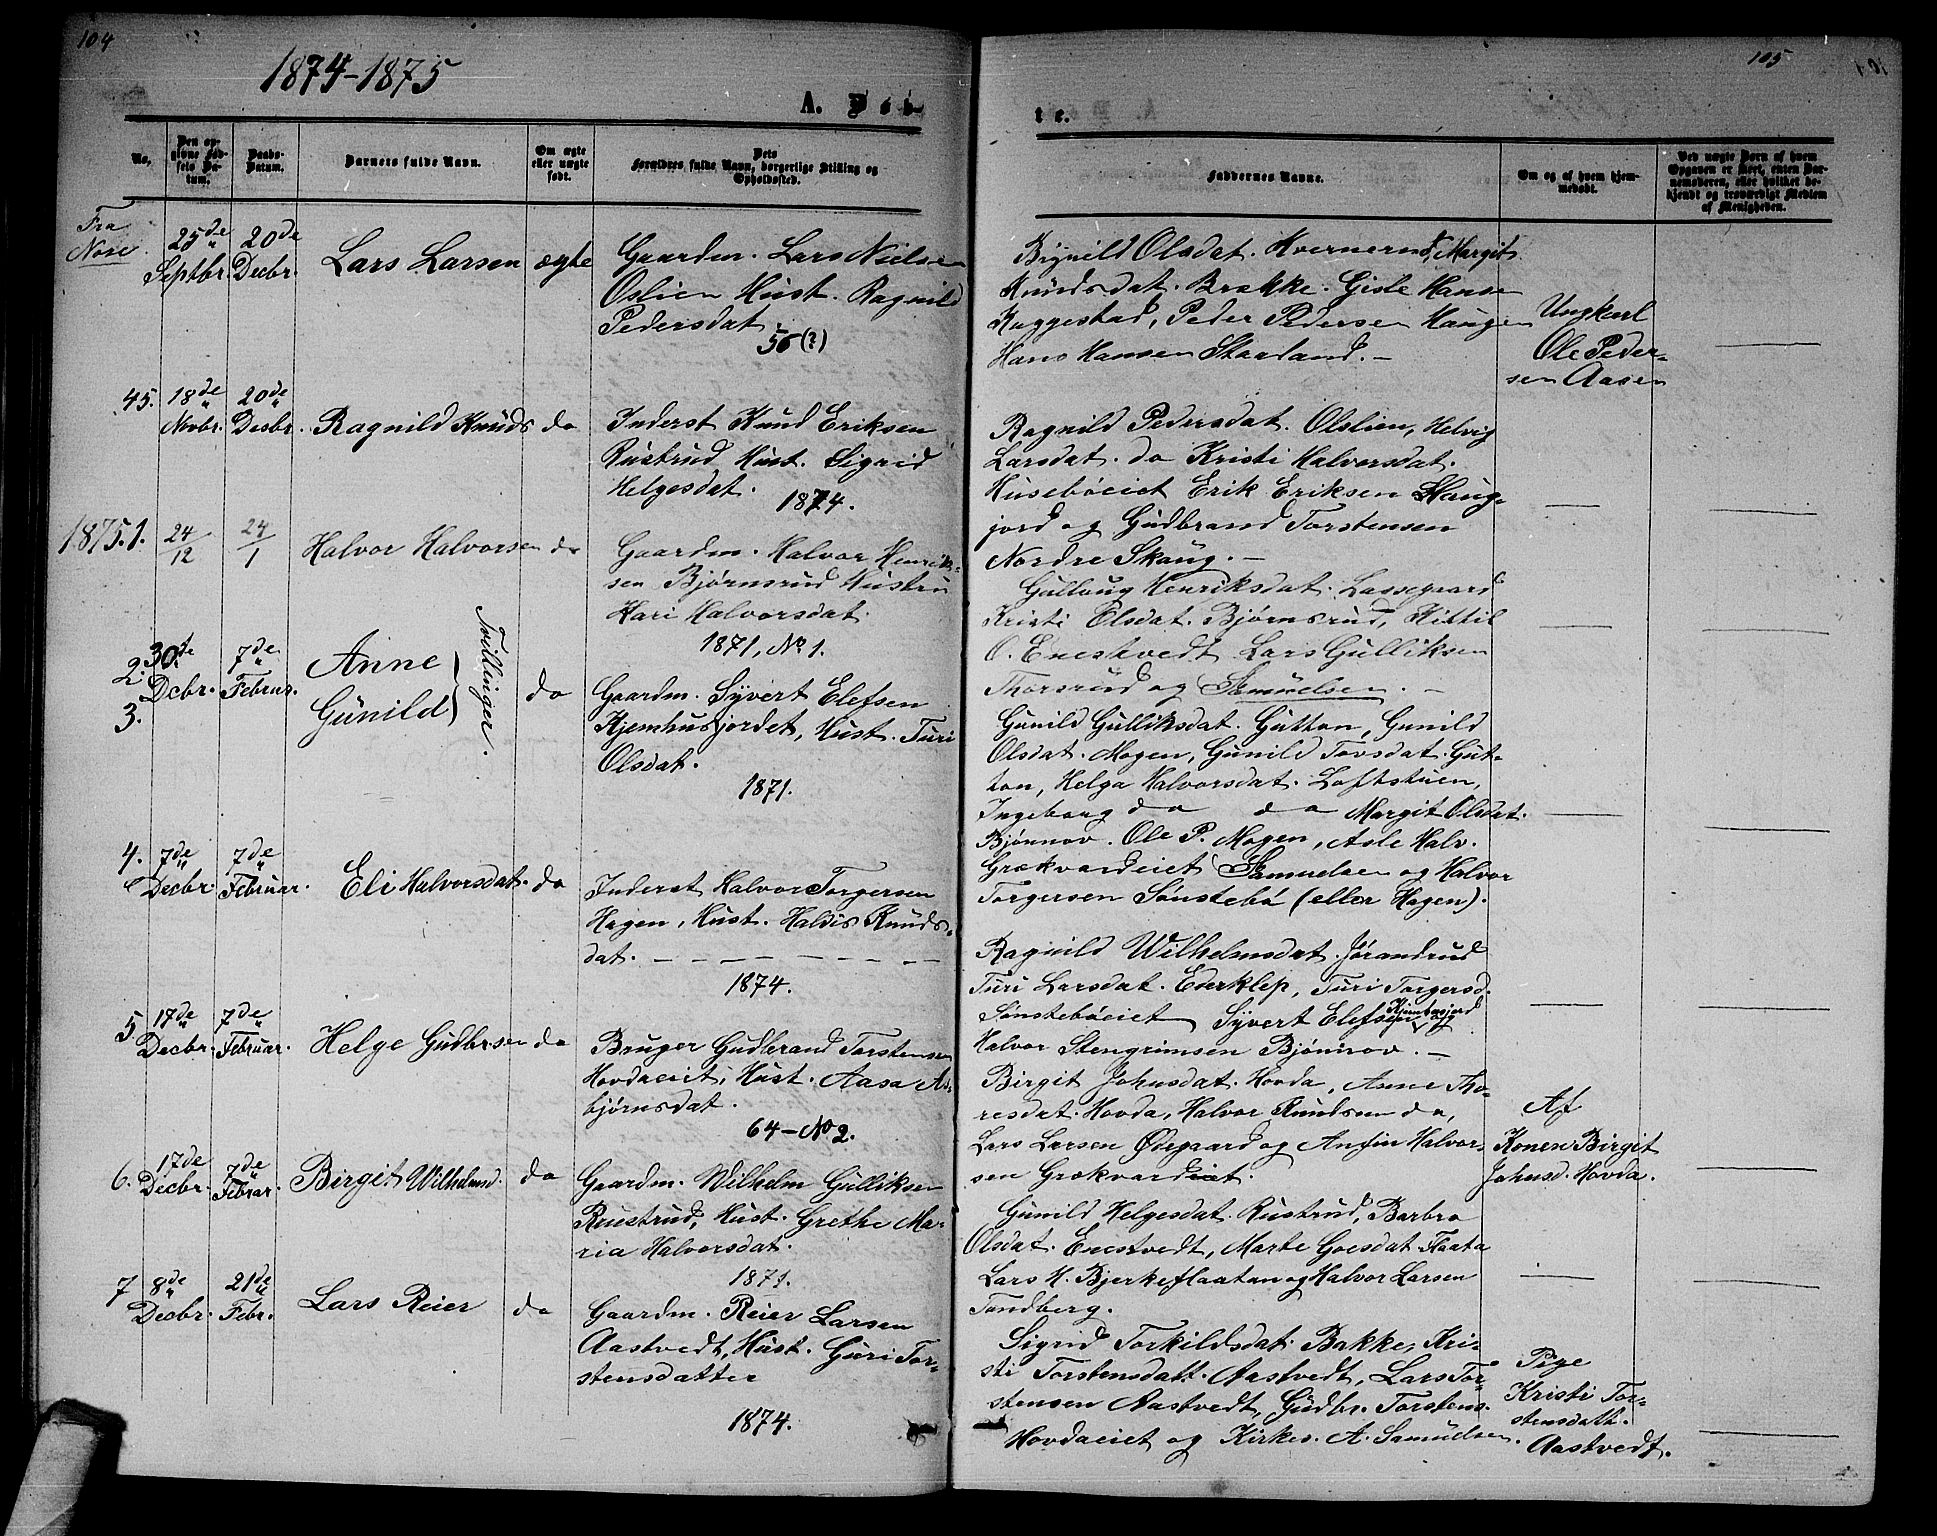 104
1874-1875
A. Døb-
No.
Den op-
givne Fød-
sels Da-
tum.
Daabs-
Datum.
Barnets fulde Navn.
Om ægte
eller uægte
født.
Dets
Forældres fulde Navn, borgerlige Stilling og
Opholdssted.
Fra
Nore.
25de
Septbr.
20de
Decbr.
Lars Larsen
ægte
Gaardm. Lars Nielsen
Oslien Hust. Ragnild
Pedersdat.
56(?)
45.
18de
Novbr.
20de
Desbr.
Ragnild Knuds
do
Inderst Knud Eriksen
Rustrud, Hust. Sigrid
Helgesdat.
1874.
1875.1.
24/12
24/1
Halvor Halvorsen
do
Gaardm. Halvor Henrik-
sen Bjørnsrud Hustru
Kari Halvorsdat.
1871, No 1.
2.
3.
30te
Dcbr.
7de
Februs.
Anne
Gunild
Tvillinger.
do
Gaardm. Syvert Elefsen
Kjemhusjordet, Hust. Turi
Olsdat.
1871.
4.
7de
Decbr.
7de
Februar.
Eli Halvorsdat.
do
Inderst Halvor Torgersen
Hagen, Hust. Haldis Knuds-
dat.
1874.
5.
17de
Decbr.
7de
Februar.
Helge Gudbrsen
do
Bruger Gudbrand Torstensen
Hovdaeiet, Hust. Aasa As-
bjørnsdat.
64-No 2.
6.
17de
Decbr.
7de
Febrar.
Birgit Wilhelmsd.
do
Gaardm. Wilhelm Gulliksen
Ruustrud, Hust. Grethe Ma-
ria Halvorsdat.
1871.
7
8de
Decbr.
21de
Febr.
Lars Reier
do
Gaardm. Reier Larsen
Aastvedt, Hust. Guri Tor-
stensdatter
1874.
105
te.
Faddernes Navne.
Om og af hvem hjem-
medøbt.
Ved uægte Børn af hvem
Opgaven er skeet, enten Bar-
nemoderen, eller hvilket be-
kjendt og troværdigt Medlem
af Menigheden.
Bignild Olsdat. Hvernerud, Margit
Knudsdat. Brække. Gisle Hanse
Kaggestad, Peder Pedersen Haugen
Hans Hansen Skarland. -
Ungkarl
Ole Peder-
sen Aasen
Ragnild Pedersdat. Olslien, Helvig
Larsdat. do Kristi Halvorsdat.
Husebøeiet Erik Eriksen Skaug-
jord og Gudbrand Torstensen
Nordre Skaug. -
Gullaug Henriksdat. Lassegaard
Kristi Olsdat. Bjørnsrud, Kittil
O. Enestvedt Lars Gulliksen
Thorsrud og Samuelsen. -
Gunild Gulliksdat. Gutton, Gunild
Olsdat. Mogen, Gunild Tovsdat. Gut-
ton, Helga Halvorsdat. Loftstuen,
Ingeborg do do Margit Olsdat.
Bjønnov. Ole P. Mogen, Asle Halv.
Grækvardeiet Samuelsen og Halvor
Torgersen Sønstebø (eller Hagen).
Ragnild Wilhelmsdat. Jørandrud
Turi Larsdat. Enerklep, Turi Torgersd.
Sønstebøeiet Syvert Elefsen Kjemhusjord og
Halvor Stengrimsen Bjønnov. -
Birgit Johnsdat. Hovda, Anne Tho-
resdat. Hovda, Halvor Knudsen do,
Lars Larsen Ødegaard og Anfin Halvor-
sen Grækvardeiet.
Af
Konen Birgit
Johnsd. Hovda.
Gunild Helgesdat. Rustrud, Barbro
Olsdat. Enestvedt, Marte Goesdat. Flaata
Lars H. Bjerkeflaatan og Halvor Larsen
Tandberg.
Sigrid Torkildsdat. Bakke, Kri-
sti Torstensdatt. Aastvedt, Lars Tor-
stensen Aastvedt, Gudbr. Torstens.
Hovdaeiet og Kirkes. A. Samuelsen.
Pige
Kristi Tor-
stensdatt.
Aastvedt.